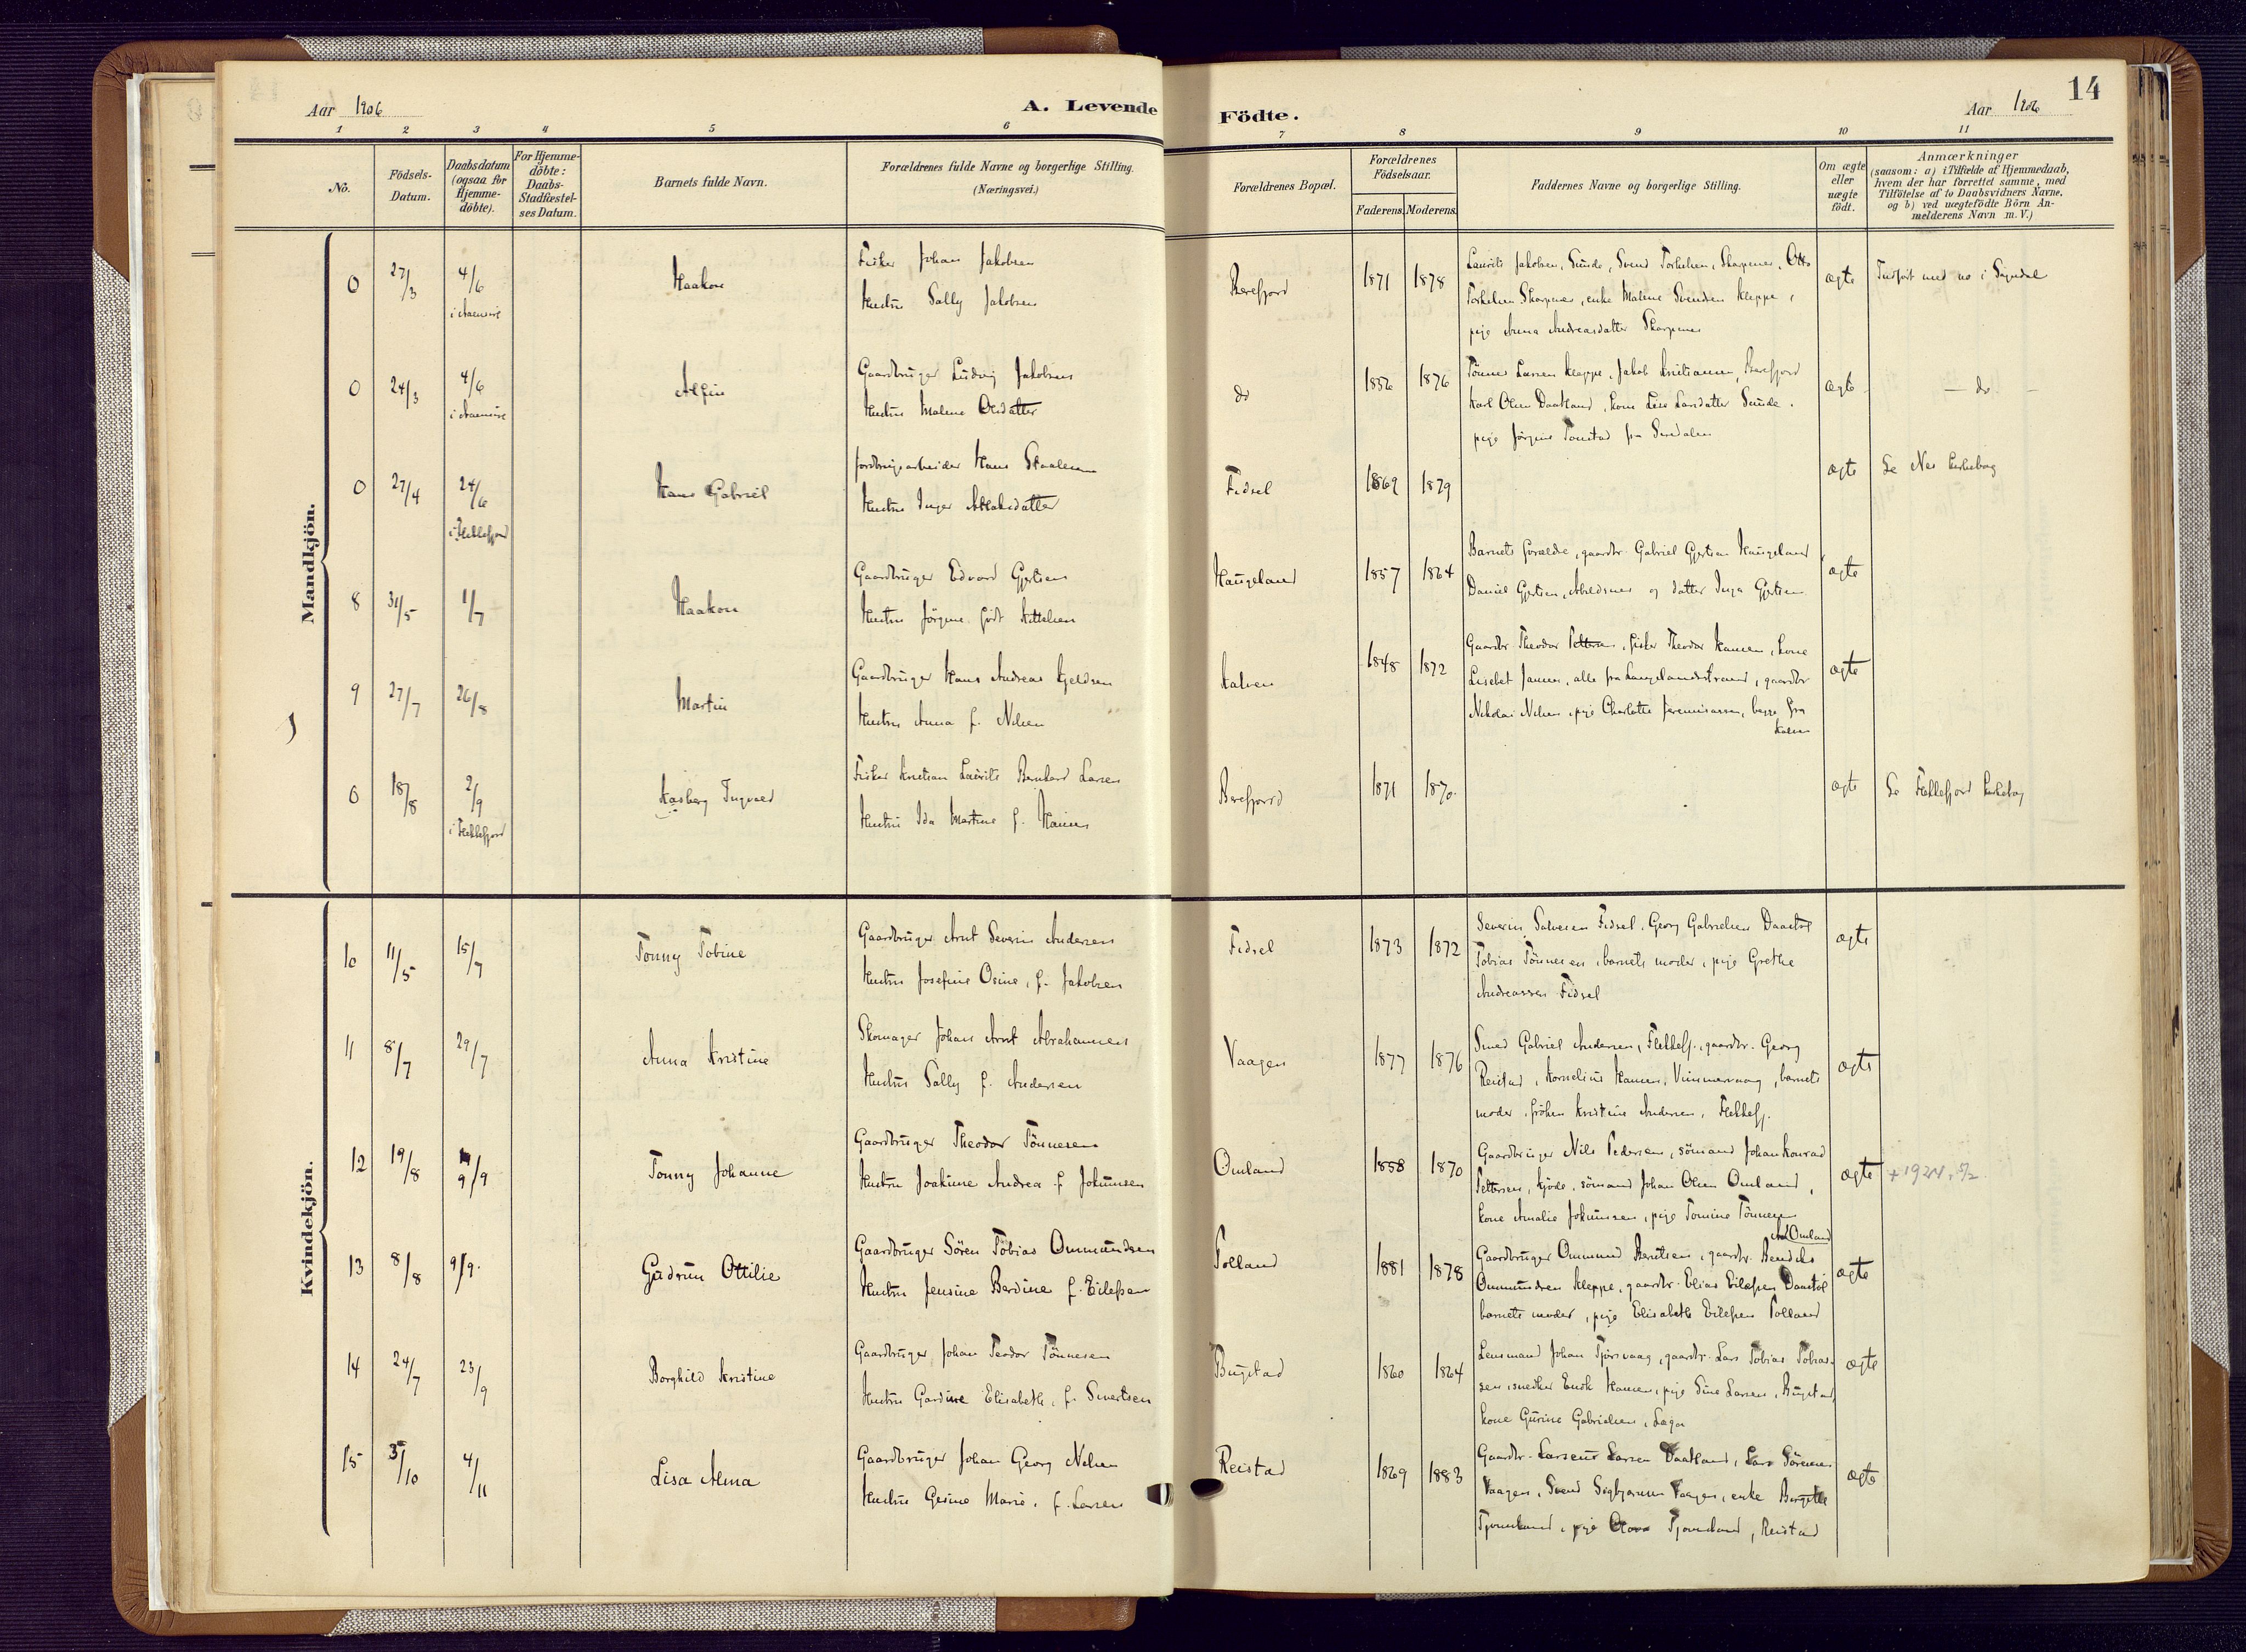 Aar 1906
A. Levende
Födte.
Aar 1906
14
1 2 3 4 5 6 7 8 9 10 11
No.
Födsels-
Datum.
Daabsdatum
(ogsaa for
Hjemme-
döbte).
For Hjemme-
döbte:
Daabs-
Stadfæstel-
ses Datum.
Barnets fulde Navn.
Forældrenes fulde Navne og borgerlige Stilling.
(Næringsvei.)
Forældrenes Bopæl.
Forældrenes
Födselsaar.
Faderens. Moderens.
Faddernes Navne og borgerlige Stilling.
Om ægte
eller
uægte
födt.
Anmærkninger
(saasom: a) i Tilfælde af Hjemmedaab,
hvem der har forrettet samme, med
Tilföielse af to Daabsvidners Navne.
og b) ved uægtefödte Börn An-
melderens Navn m. V.)
Mandkjön.
0 27/3 4/6
Haakon
Fisker Johan Jakobsen
Hustru Sally Jakobsen
1871 1878
Laurits Jakobsen, Sunde, Svend Torkelsen, Skarpenes, Otto
Torkelsen Skarpenes, enke Malene Svendsen Kleppe,
pige Anna Andreasdatter Skarpenes
ægte
0 24/3 4/6
Alfin
Gaardbruger Ludvig Jakobsen
Hustru Malene Olsdatter
do 1856 1876
Tönnes Larsen Kleppe, Jakob Kristiansen
Karl Olsen Daatland, kone Lise Larsdatter Sunde.
pige Jörgine Tonstad fra Sirdalen
ægte
— do —
0 27/4 24/6
i Flekkefjord
Hans Gabriel
Hustru Inger
Fidsel 1869 1879
ægte
Se Nes kirkebog
8 31/5 1/7
Haakon
Gaardbruger Edvard Gjertsen
Hustru Jörgine född Kittelsen
Haugeland 1857 1864
Barnets forældre, gaardbr. Gabriel Gjertsen Haugeland
Daniel Gjertsen, og datter Inga Gjertsen
ægte
9 27/7 26/8
Martin
Gaardbruger Hans Andreas Kjeldsen
Hustru Anna f. Nilsen
Kalven 1848 1872
Gaardbr Theodor Pettersen, fisker Theodor Hansen, kone
Lisebet Jansen, alle fra Langelandsstrand, gaardbr
Nikolai Nilsen, pige Charlotte Jeremiassen, begge fra
Kalven
ægte
0 18/8 2/9
i Flekkefjord
Kasberg Ingvald
Fisker Kristian Laurits Bernhard Larsen
Hustru Ida Martine f. Hansen
1871 1870.
ægte
Se Flekkefjord kirkebog
Kvindekjön.
10 11/5 15/7
Tonny Tobine
Gaardbruger Arnt Severin Andersen
Hustru Josefine Osine, f. Jakobsen
Fidsel 1873 1872
Severin Salvesen Fidsel, Georg Gabrielsen Daastöl
Tobias Tönnesen, barnets moder, pige Grethe
Andreassen Fidsel
ægte
11 8/7 29/7
Anna Kristine
Skomager Johan Arnt Abrahamsen
Hustru Sally f. Andersen
Vaagen 1877 1876
Smed Gabriel Andersen, Flekkefj., gaardbr. Georg
Reistad, Kornelius Hansen, barnets
moder, fröken Kristine Andersen, Flekkefj.
ægte
12 19/8 9/9
Tonny Johanne
Gaardbruger Theodor Tönnesen
Hustru Joakime Andrea f. Jokumsen
Omland 1858 1870
Gaardbruger Nils Pedersen, sömand Johan Konrad
Pettersen, Kjöde, sömand Johan Olsen Omland,
kone Amalie Jokumsen, pige Tomine Tönnesen
Omland
ægte
13 8/8 9/9.
Gudrun Ottilie
Gaardbruger Sören Tobias Ommundsen
Hustru Jensine Berdine f. Eilefsen
Polland 1881 1878
Gaardbruger Ommund Berntsen, gaardbr.
Ommundsen Kleppe, gaardbr. Elias Eilefsen Daastöl
barnets moder, pige Elisabeth Eilefsen Polland
ægte
14 24/7 23/9
Borghild Kristine
Gaardbruger Johan Teodor Tönnesen
Hustru Gardine Elisabeth, f. Sivertsen
Bugstad 1860 1864
Lensmand Johan Tjörsvaag, gaardbr. Lars Tobias Tobias-
sen, snedker Enok Hansen, pige Sine Larsen, Bugstad,
kone Gurine Gabrielsen, Laga
ægte
15 3/10 4/11
Lisa Alma
Gaardbruger Johan Georg Nilsen
Hustru Gesine Marie, f. Larsen
Reistad 1869 1883
Gaardbr. Larsen Daatland, Lars Sörensen
Vaagen, Svend Sigbjörnsen Vaagen, enke Birgitte
Tjomsland, pige Tjomsland, Reistad
ægte